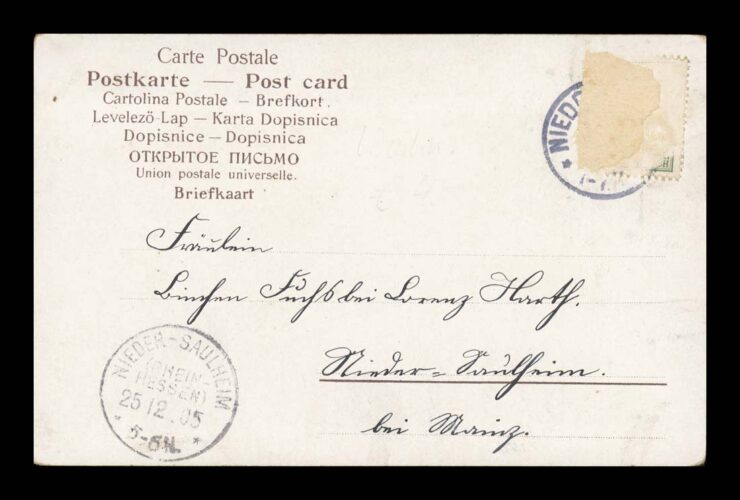 Carte Postale
Postkarte — Post card
Cartolina Postale – Brefkort.
Levelező-Lap – Karta Dopisnica
Dopisnice – Dopisnica
ОТКРЫТОЕ ПИСЬМО
Union postale universelle.
Briefkaart
* NIEDO
Fräulein
Binchen Fuchs bei Lorenz Harth.
Nieder-Saulheim.
bei Mainz.
NIEDER-SAULHEIM
(RHEIN-
HESSEN)
25 12 05
* 5-6N. *